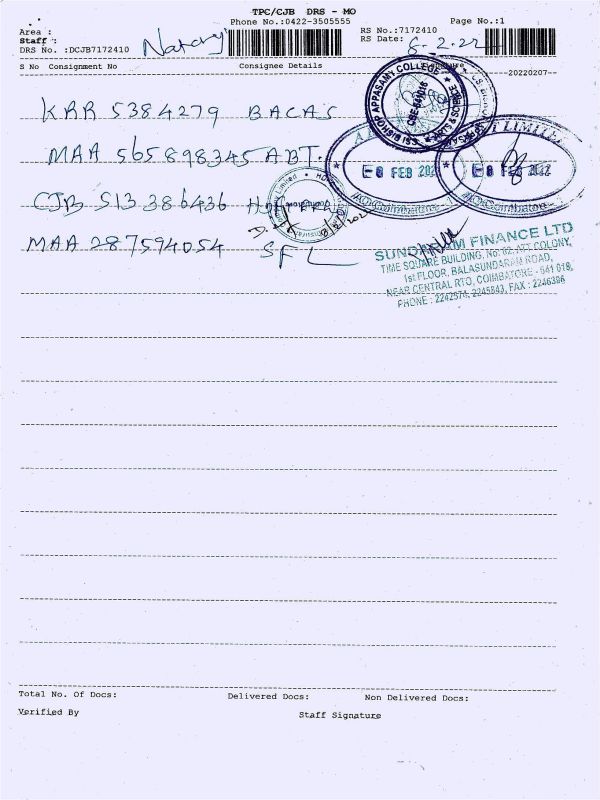 TPC/CJB DRS - MO
Phone No.:0422-3505555
Page No.:1
Area :
Staff : Nataraj
DRS No. :DCJB7172410
RS No.:7172410
RS Date: 8-2-22
S No Consignment No Consignee Details
20220207
KRR 5384279 BACAS
MAA 565898345 ABT.
CJB 513386436
MAA 287594054 SFL
CSI BISHOP APPASAMY COLLEGE
CBE-641018
08 FEB 2022
08 FEB 2022
Coimbatore
Coimbatore
SUNDARAM FINANCE LTD
TIME SQUARE BUILDING, No: 62, ATT COLONY,
1st FLOOR, BALASUNDARAM ROAD,
NEAR CENTRAL RTO, COIMBATORE - 641 018,
PHONE : 2242574, 2245843, FAX : 2246386
Total No. Of Docs: Delivered Docs: Non Delivered Docs:
Verified By Staff Signature